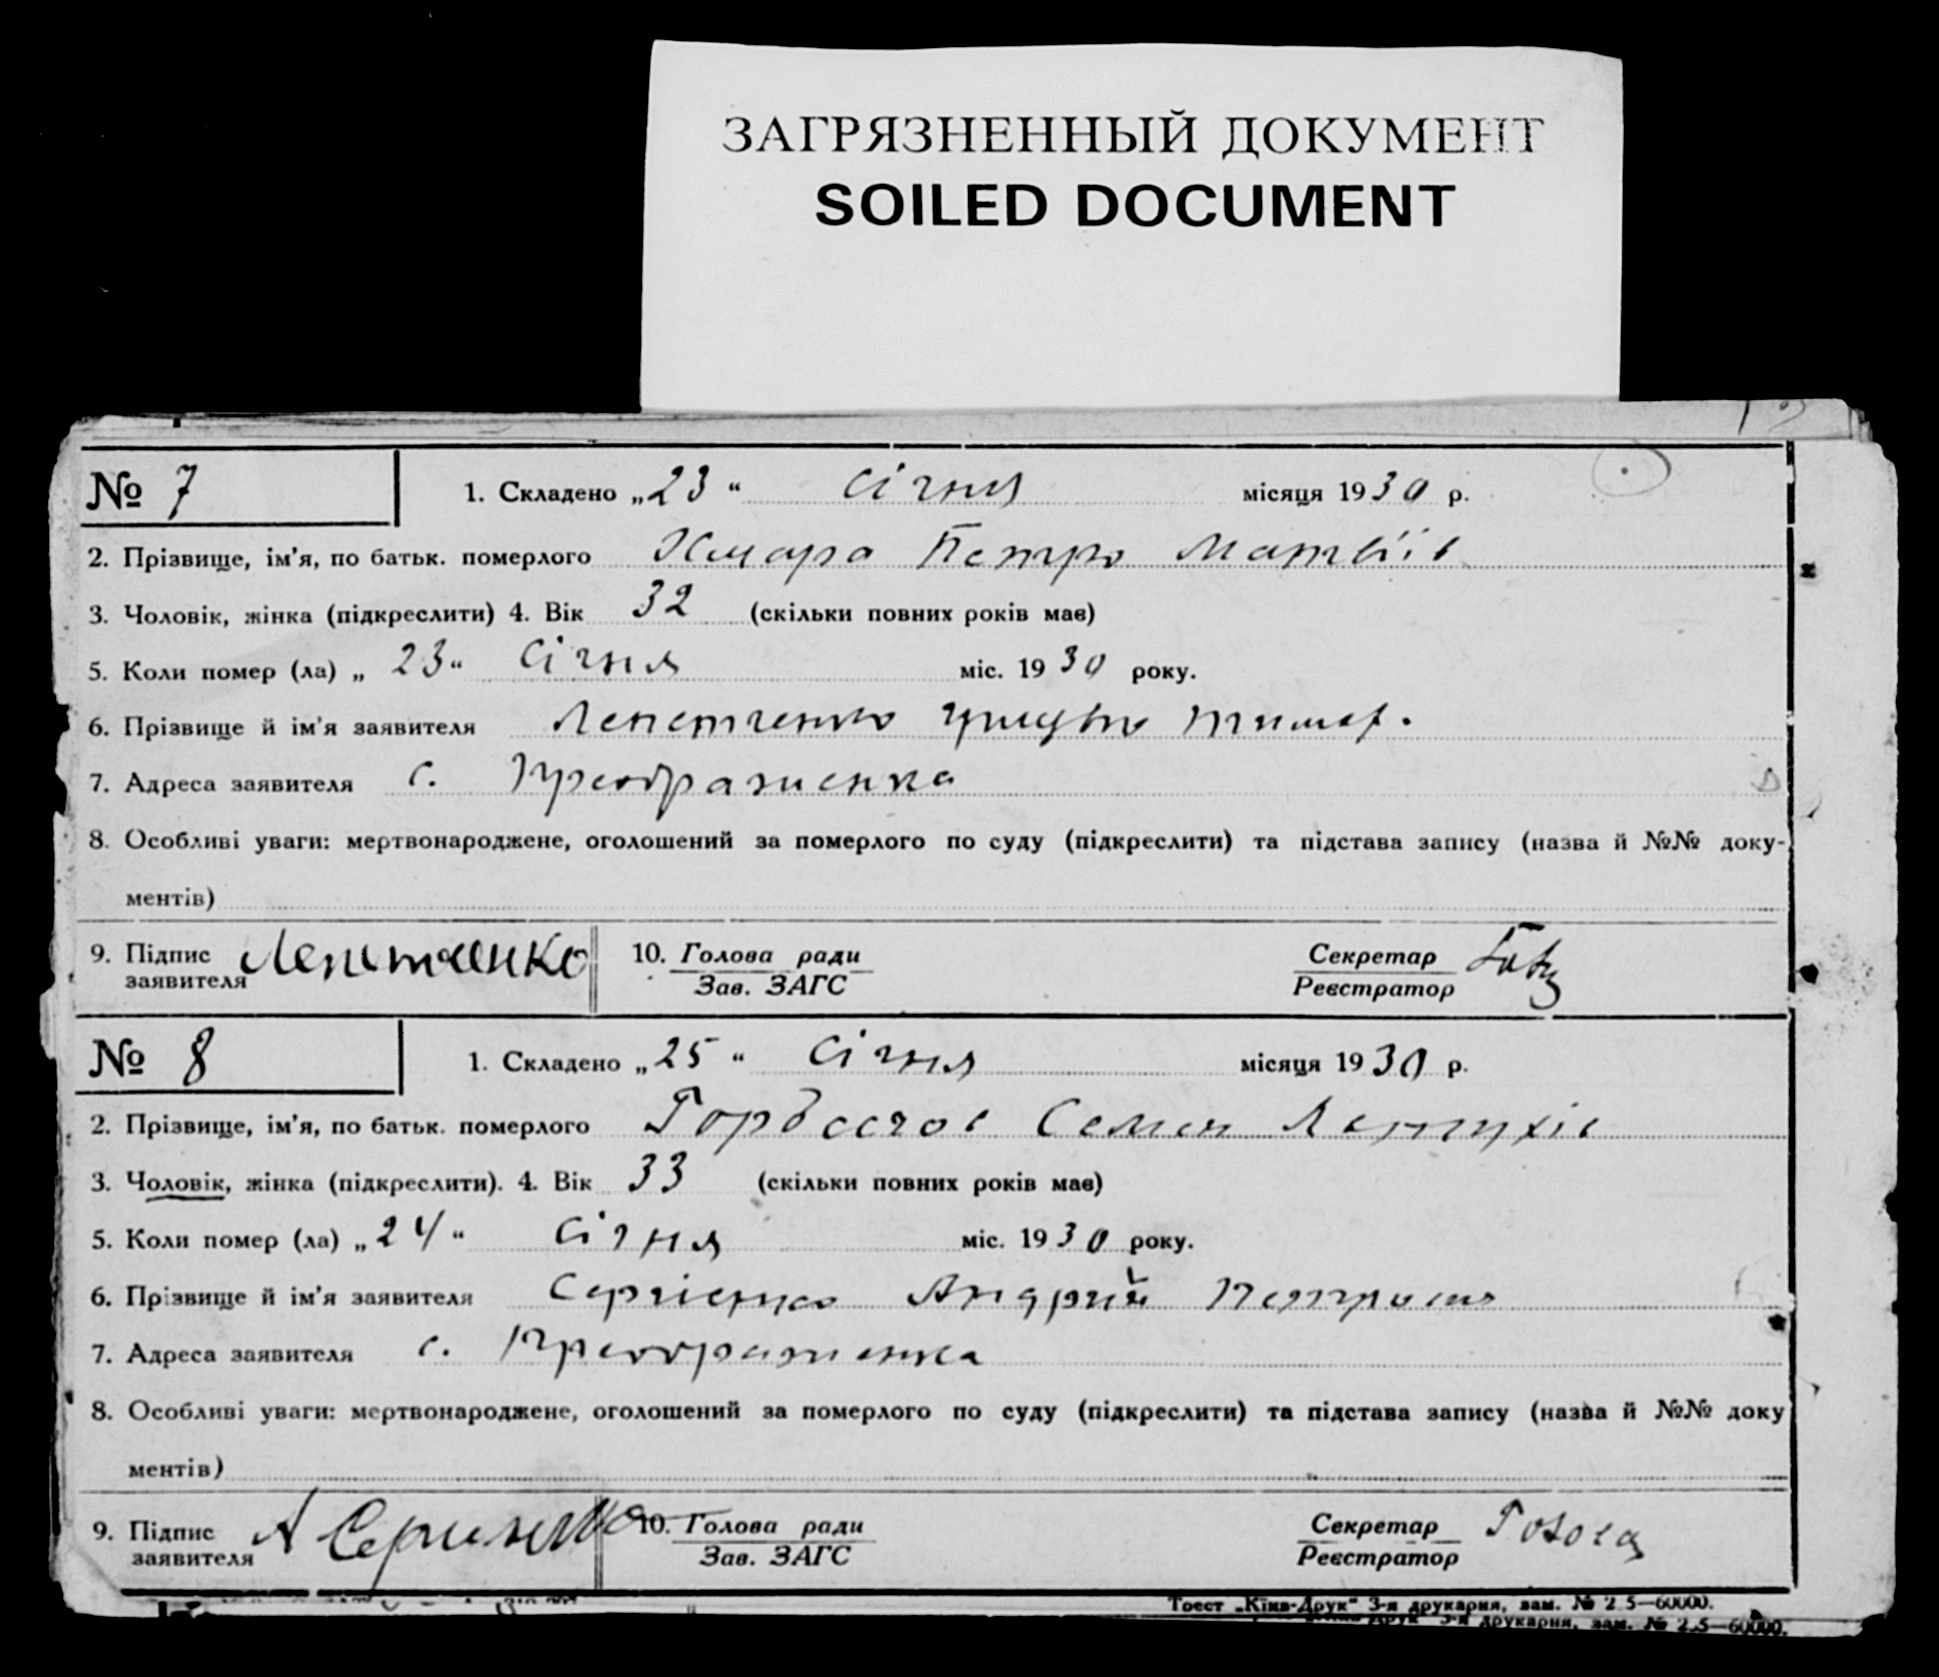 ЗАГРЯЗНЕННЫЙ ДОКУМЕНТ
SOILED DOCUMENT
№ 7
1. Складено „23“ січня місяця 1930 р.
2. Прізвище, ім'я, по батьк. померлого Хмара Петро Матвіїв
3. Чоловік, жінка (підкреслити) 4. Вік 32 (скільки повних років має)
5. Коли помер (ла) „23“ січня міс. 1930 року.
6. Прізвище й ім'я заявителя
7. Адреса заявителя с. Преображенка
8. Особливі уваги: мертвонароджене, оголошений за померлого по суду (підкреслити) та підстава запису (назва й №№ доку-
ментів)
9. Підпис заявителя
10. Голова ради Зав. ЗАГС
Секретар Реєстратор
№ 8
1. Складено „25“ січня місяця 1930 р.
2. Прізвище, ім'я, по батьк. померлого Семен
3. Чоловік, жінка (підкреслити). 4. Вік 33 (скільки повних років має)
5. Коли помер (ла) „24“ січня міс. 1930 року.
6. Прізвище й ім'я заявителя Сергієнко Андрій
7. Адреса заявителя с. Преображенка
8. Особливі уваги: мертвонароджене, оголошений за померлого по суду (підкреслити) та підстава запису (назва й №№ доку
ментів)
9. Підпис заявителя А
10. Голова ради Зав. ЗАГС
Секретар Реєстратор
Тоест „Київ-Друк“ 3-я друкарня, зам. № 2.5—60000.
друкарня, зам. № 2.5—60000.